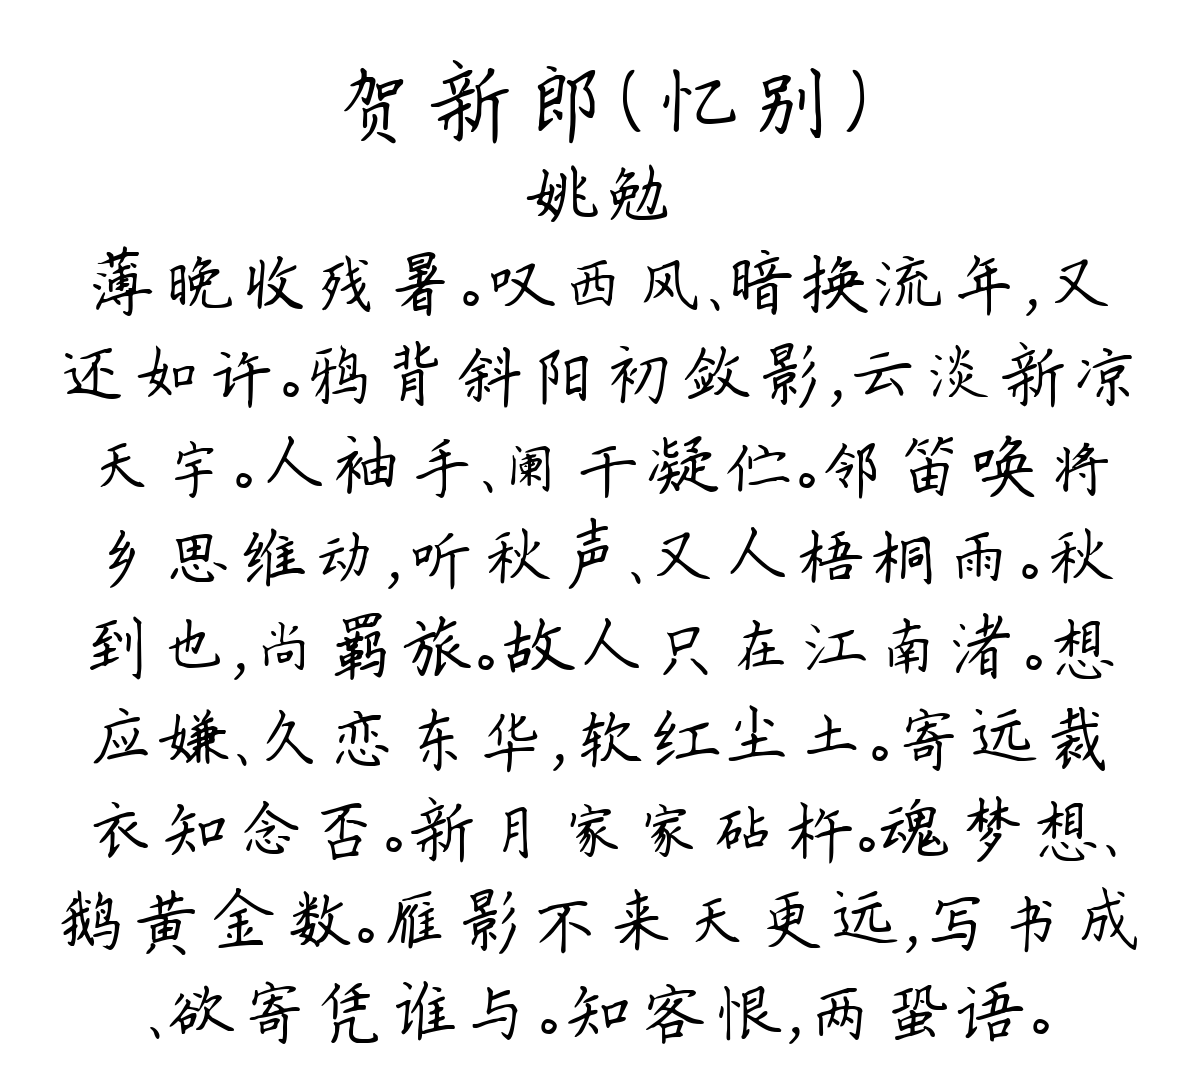 贺新郎(忆别)
姚勉
薄晚收残暑。叹西风、暗换流年,又
还如许。鸦背斜阳初敛影,云淡新凉
天宇。人袖手、阑干凝伫。邻笛唤将
乡思维动,听秋声、又人梧桐雨。秋
到也,尚羁旅。故人只在江南渚。想
应嫌、久恋东华,软红尘土。寄远裁
衣知念否。新月家家砧杵。魂梦想、
鹅黄金数。雁影不来天更远,写书成
、欲寄凭谁与。知客恨,两蛩语。